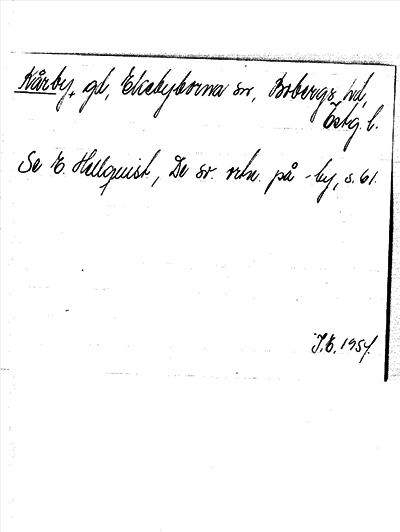 Kårby, gd, Ekebyborna sn, Bobergs hd,
Östg. l.
Se E. Hellquist, De sv. ortn. på -by, s. 61.
J.E. 1954.